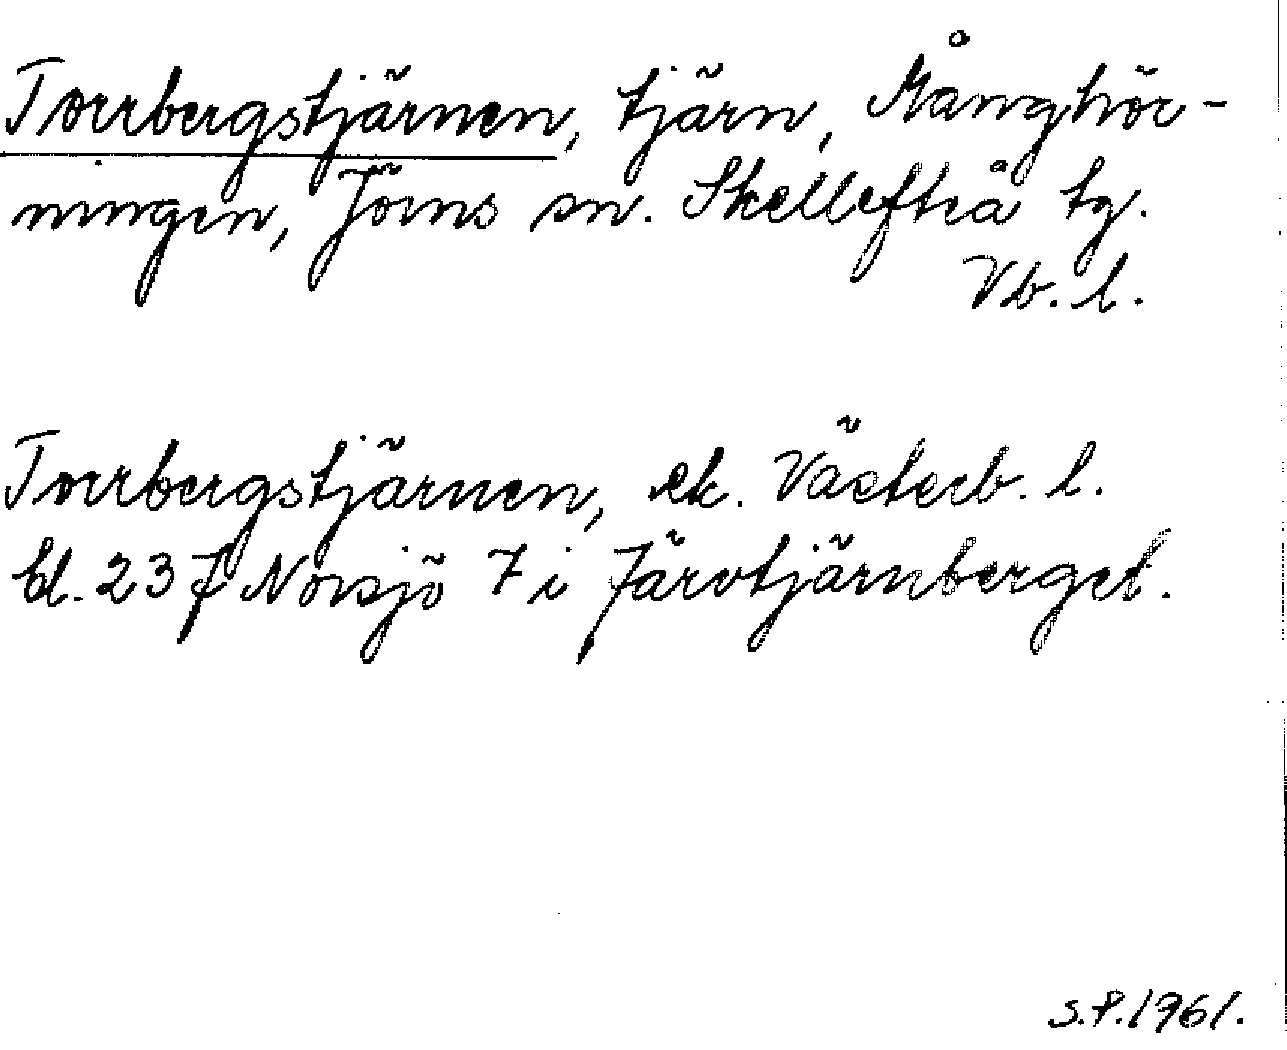 Torrbergstjärnen, tjärn, Månghör-
ningen, Jörns sn. Skellefteå tg.
Vb. l.
Torrbergstjärnen, ek. Västerb. l.
bl. 23 f Norsjö 7 i Järvtjärnberget.
S.P. 1961.